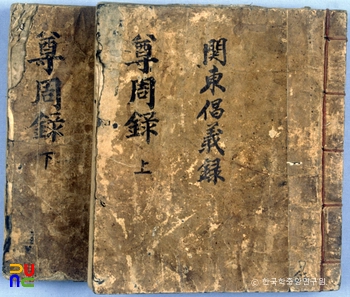 關東倡義錄
尊周錄 上
尊周錄 下
© 한국학중앙연구원